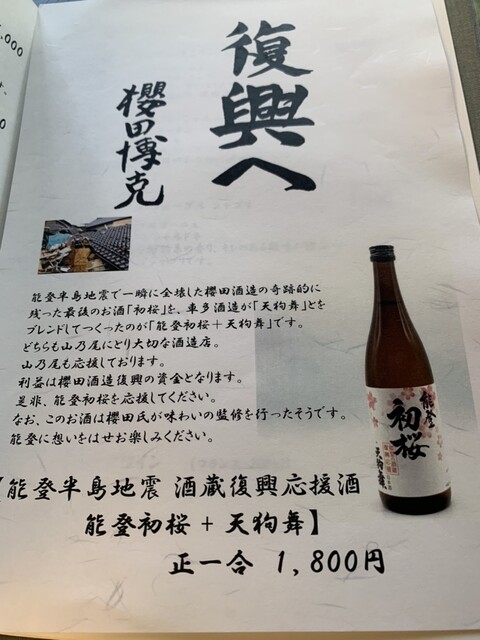 ,000
0
復興へ
櫻田博克
能登半島地震で一瞬に全壊した櫻田酒造の奇跡的に
残った最後のお酒「初桜」を、車多酒造が「天狗舞」とを
ブレンドしてつくったのが「能登初桜＋天狗舞」です。
どちらも山乃尾にとり大切な酒造店。
山乃尾も応援しております。
利益は櫻田酒造復興の資金となります。
是非、能登初桜を応援してください。
なお、このお酒は櫻田氏が味わいの監修を行ったそうです。
能登に想いをはせお楽しみください。
能登
初桜
天狗舞
【能登半島地震 酒蔵復興応援酒
能登初桜 + 天狗舞】
正一合 1,800円